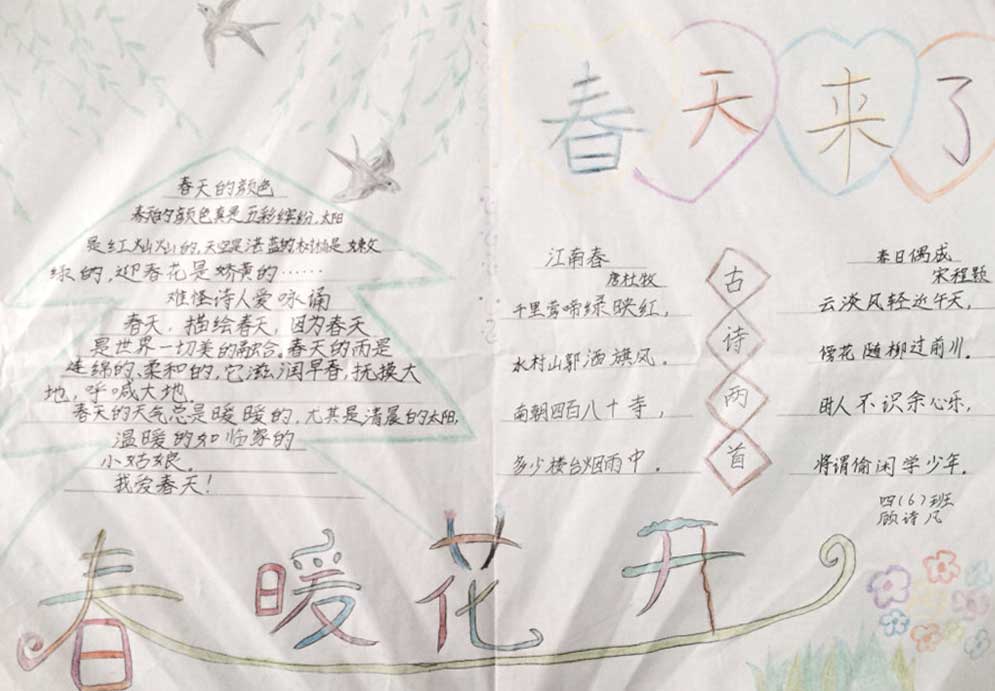 春天来了
春天的颜色
春天的颜色真是五彩缤纷,太阳
是红灿灿的,天空是湛蓝的树梢是嫩
绿的,迎春花是娇黄的……
难怪诗人爱咏诵
春天,描绘春天,因为春天
是世界一切美的融合,春天的雨是
连绵的、柔和的,它滋润早春,抚摸大
地,呼喊大地。
春天的天气总是暖暖的,尤其是清晨的太阳,
温暖的如临家的
小姑娘。
我爱春天!
古诗两首
江南春
唐杜牧
千里莺啼绿映红,
水村山郭酒旗风。
南朝四百八十寺,
多少楼台烟雨中。
春日偶成
宋程颢
云淡风轻近午天,
傍花随柳过前川。
时人不识余心乐,
将谓偷闲学少年。
四(6)班
顾诗凡
春暖花开